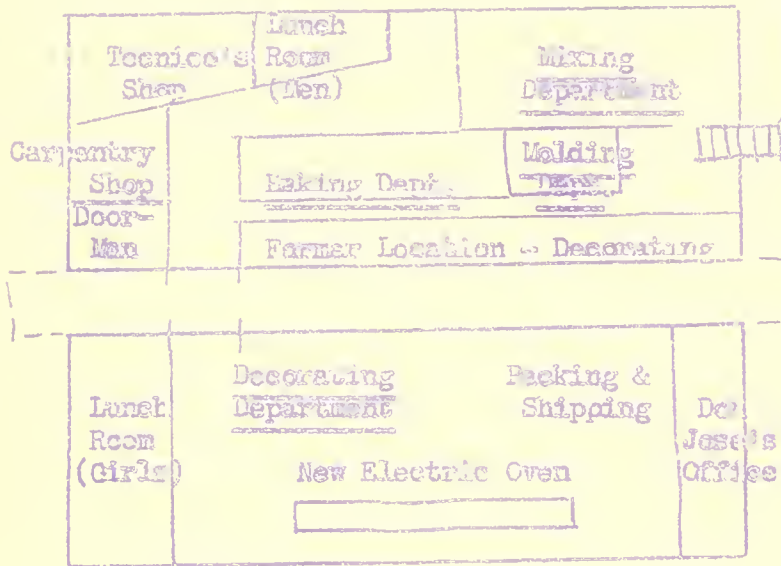 Tecnico's
Shop
Lunch
Room
(Men)
Mixing
Department
Carpentry
Shop
Door-
Men
Dept.
Molding
Dept.
Former Location - Decorating
Lunch
Room
(Girls)
Decorating
Department
Packing &
Shipping
New Electric Oven
Don
Jose's
Office